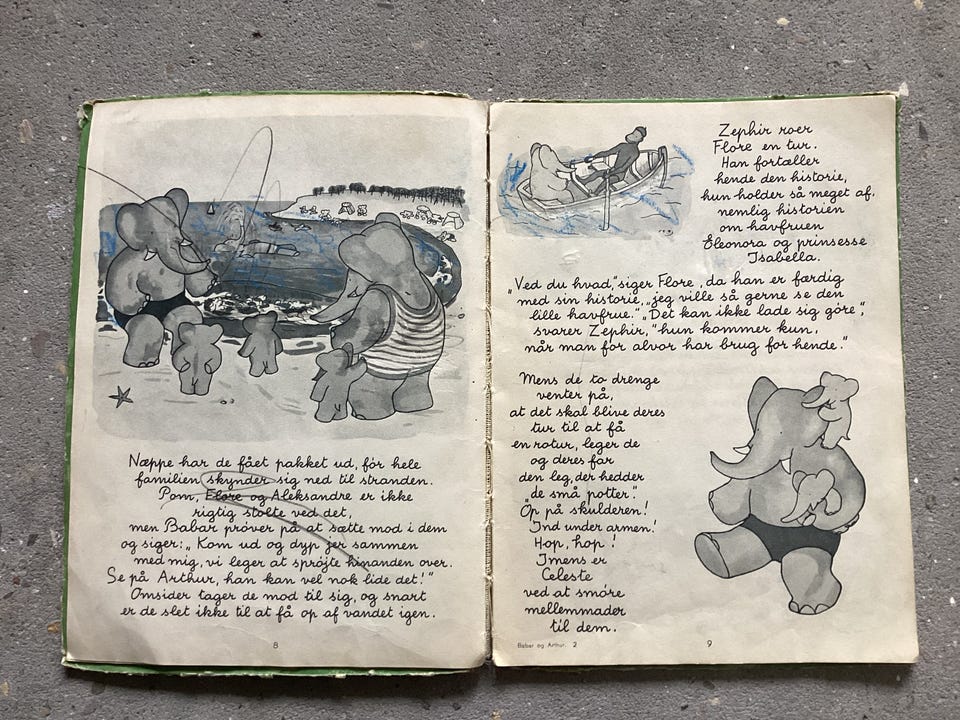 Næppe har de fået pakket ud, før hele
familien skynder sig ned til stranden.
Pom, Flore og Aleksandre er ikke
rigtig stolte ved det,
men Babar prøver på at sætte mod i dem
og siger: „Kom ud og dyp jer sammen
med mig, vi leger at sprøjte hinanden over.
Se på Arthur, han kan vel nok lide det!"
Omsider tager de mod til sig, og snart
er de slet ikke til at få op af vandet igen.
8
Zephir roer
Flore en tur.
Han fortæller
hende den historie,
hun holder så meget af,
nemlig historien
om havfruen
Eleonora og prinsesse
Isabella.
„Ved du hvad," siger Flore, da han er færdig
med sin historie, „jeg ville så gerne se den
lille havfrue." „Det kan ikke lade sig göre",
svarer Zephir, "hun kommer kun,
når man for alvor har brug for hende."
Mens de to drenge
venter på,
at det skal blive deres
tur til at få
en rotur, leger de
og deres far
den leg, der hedder
„de små potter."
"Op på skulderen!
Ind under armen!
Hop, hop!
Imens er
Celeste
ved at smøre
mellemmader
til dem.
Babar og Arthur. 2
9